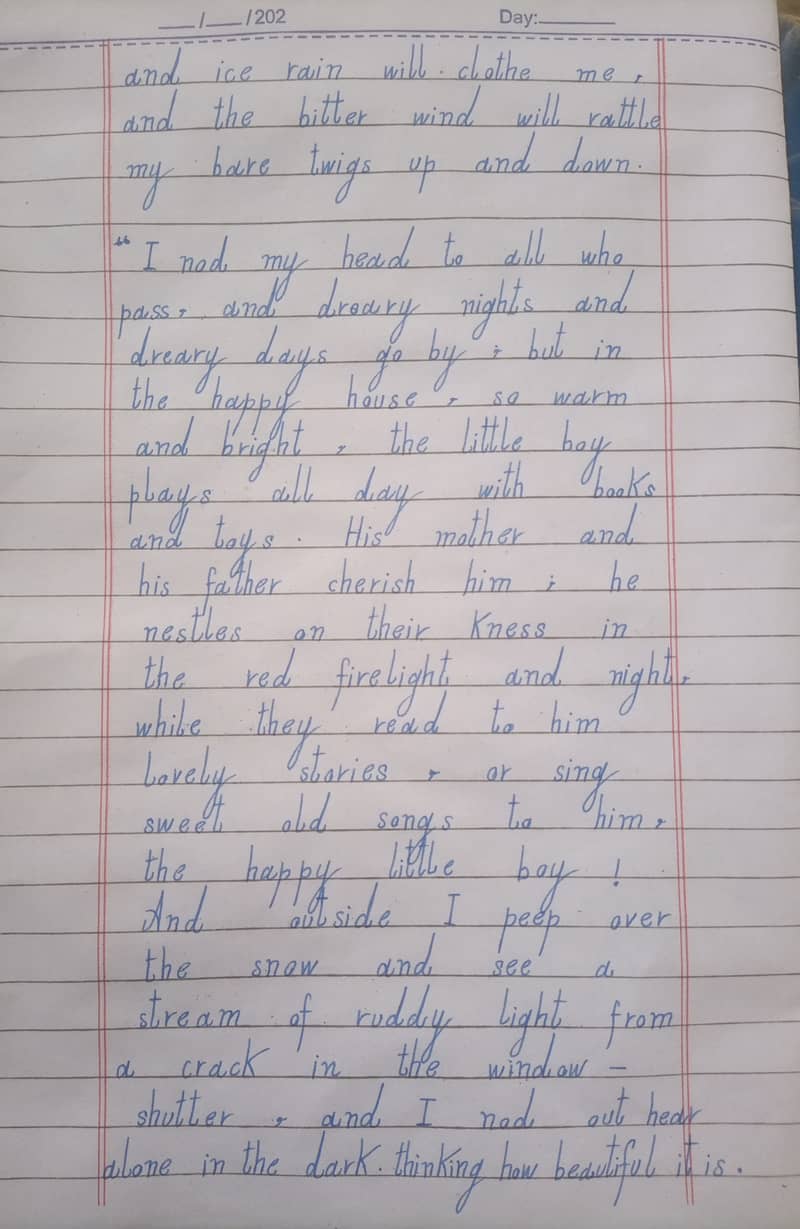 __/__/202 Day:______
and ice rain will clothe me,
and the bitter wind will rattle
my bare twigs up and down.
"I nod my head to all who
pass, and dreary nights and
dreary days go by; but in
the happy house, so warm
and bright, the little boy
plays all day with books
and toys. His mother and
his father cherish him; he
nestles on their Kness in
the red firelight and night,
while they read to him
lovely stories, or sing
sweet old songs to him,
the happy little boy!
And outside I peep over
the snow and see a
stream of ruddy light from
a crack in the window -
shutter, and I nod out hear
alone in the dark. thinking how beautiful it is.